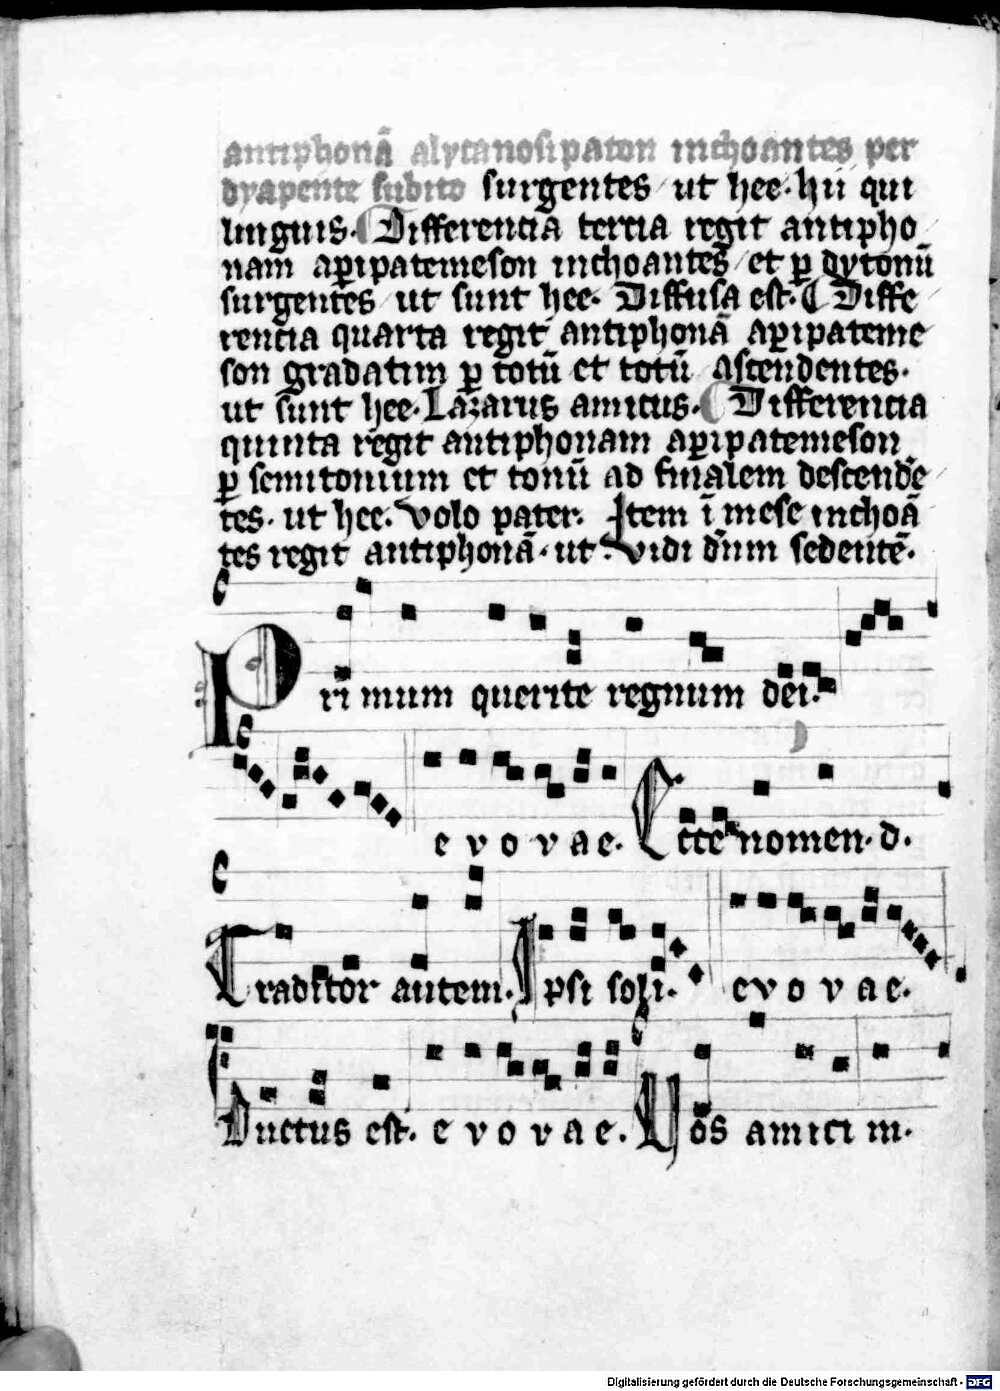 antiphonā alycanosipaton inchoantes per
dyapente subito surgentes ut hee. hii qui
linguis. Differencia tercia regit antipho
nam aparipatemeson inchoantes et ꝑ dytonū
surgentes ut sunt hee. Diffusa est. Diffe
rencia quarta regit antiphonā aparipateme
son gradatim ꝑ totū et totū ascendentes.
ut sunt hee. Lazarus amicus. Differencia
quinta regit antiphonam aparipatemeson
ꝑ semitonium et tonū ad finalem descendē
tes. ut hee. Volo pater. Item ī mese inchoā
tes regit antiphonā. ut. Vidi dn̄m sedentē.
Primum querite regnum dei.
e v o v a e. Ecce nomen. d.
Traditor autem. Ipsi soli. e v o v a e.
Ductus est. e v o v a e. Vos amici m.
Digitalisierung gefördert durch die Deutsche Forschungsgemeinschaft - DFG